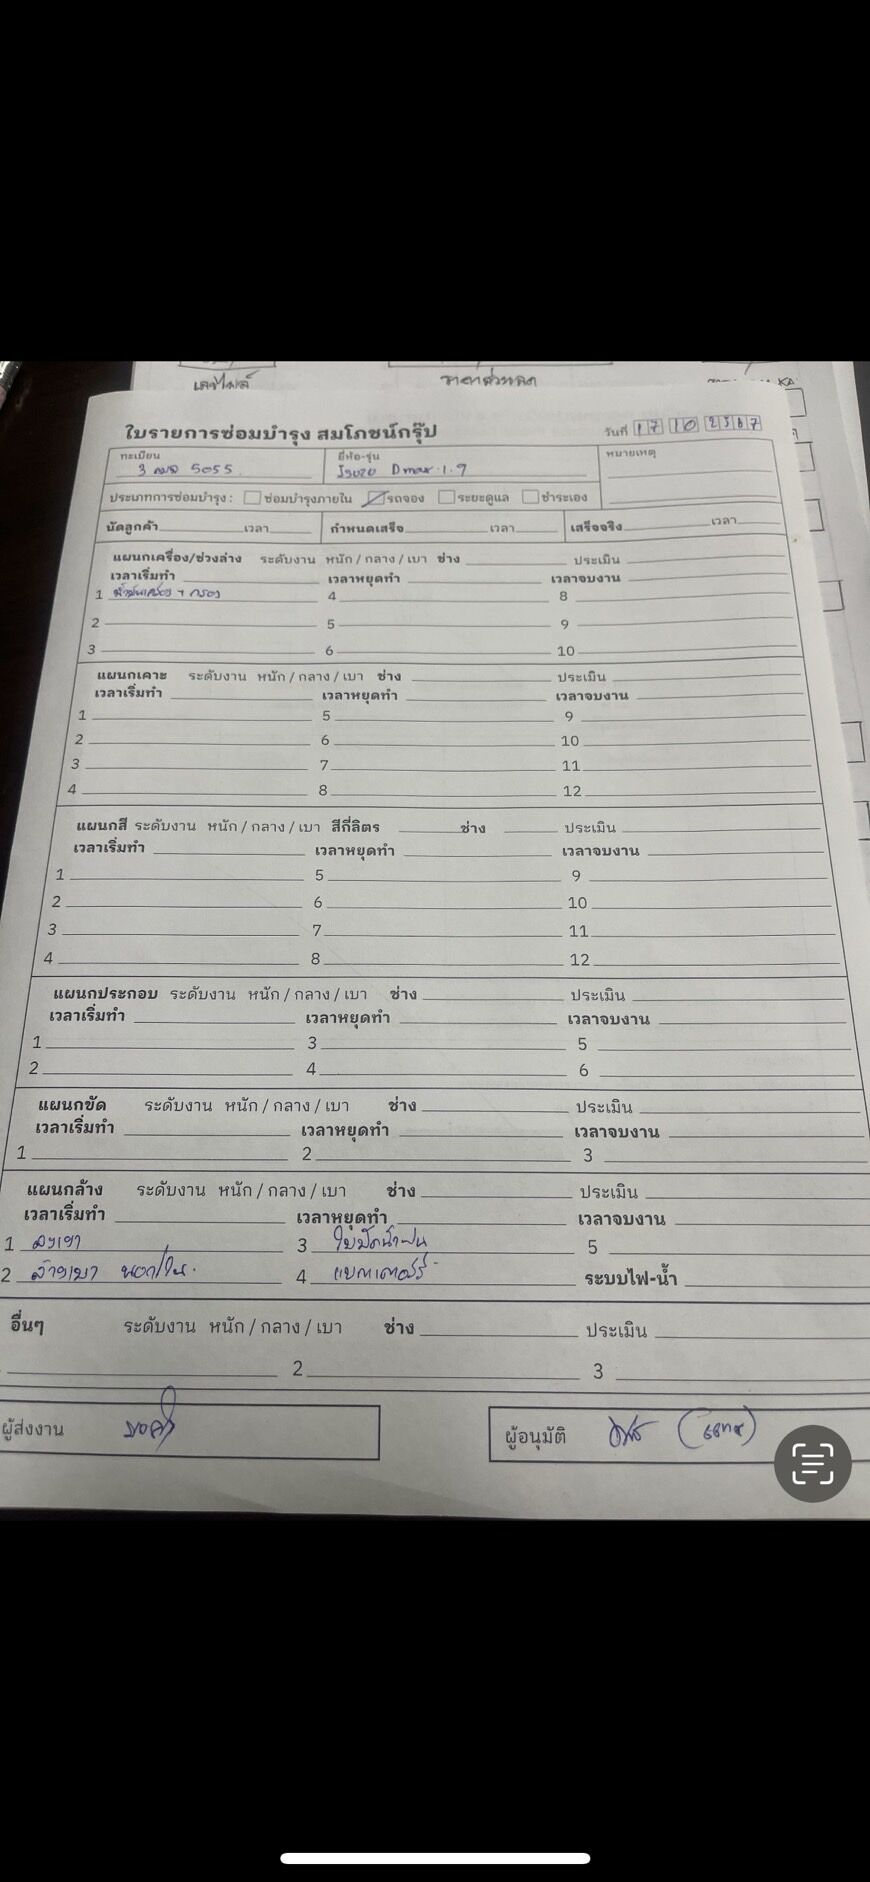 เลขไมล์
ใบรายการซ่อมบำรุง สมโภชน์กรุ๊ป วันที่ 17 10 2567
ทะเบียน ยี่ห้อ-รุ่น หมายเหตุ
3 5055 Isuzu Dmax 1.9
ประเภทการซ่อมบำรุง : ซ่อมบำรุงภายใน รถจอง ระยะดูแล ชำระเอง
นัดลูกค้า เวลา กำหนดเสร็จ เวลา เสร็จจริง เวลา
แผนกเครื่อง/ช่วงล่าง ระดับงาน หนัก / กลาง / เบา ช่าง ประเมิน
เวลาเริ่มทำ เวลาหยุดทำ เวลาจบงาน
1 น้ำมันเครื่อง + กรอง 4 8
2 5 9
3 6 10
แผนกเคาะ ระดับงาน หนัก / กลาง / เบา ช่าง ประเมิน
เวลาเริ่มทำ เวลาหยุดทำ เวลาจบงาน
1 5 9
2 6 10
3 7 11
4 8 12
แผนกสี ระดับงาน หนัก / กลาง / เบา สีกี่ลิตร ช่าง ประเมิน
เวลาเริ่มทำ เวลาหยุดทำ เวลาจบงาน
1 5 9
2 6 10
3 7 11
4 8 12
แผนกประกอบ ระดับงาน หนัก / กลาง / เบา ช่าง ประเมิน
เวลาเริ่มทำ เวลาหยุดทำ เวลาจบงาน
1 3 5
2 4 6
แผนกขัด ระดับงาน หนัก / กลาง / เบา ช่าง ประเมิน
เวลาเริ่มทำ เวลาหยุดทำ เวลาจบงาน
1 2 3
แผนกล้าง ระดับงาน หนัก / กลาง / เบา ช่าง ประเมิน
เวลาเริ่มทำ เวลาหยุดทำ เวลาจบงาน
1 3 ใบปัดน้ำฝน 5
2 นอก/ใน 4 แบตเตอร์รี่ ระบบไฟ-น้ำ
อื่นๆ ระดับงาน หนัก / กลาง / เบา ช่าง ประเมิน
2 3
ผู้ส่งงาน ผู้อนุมัติ